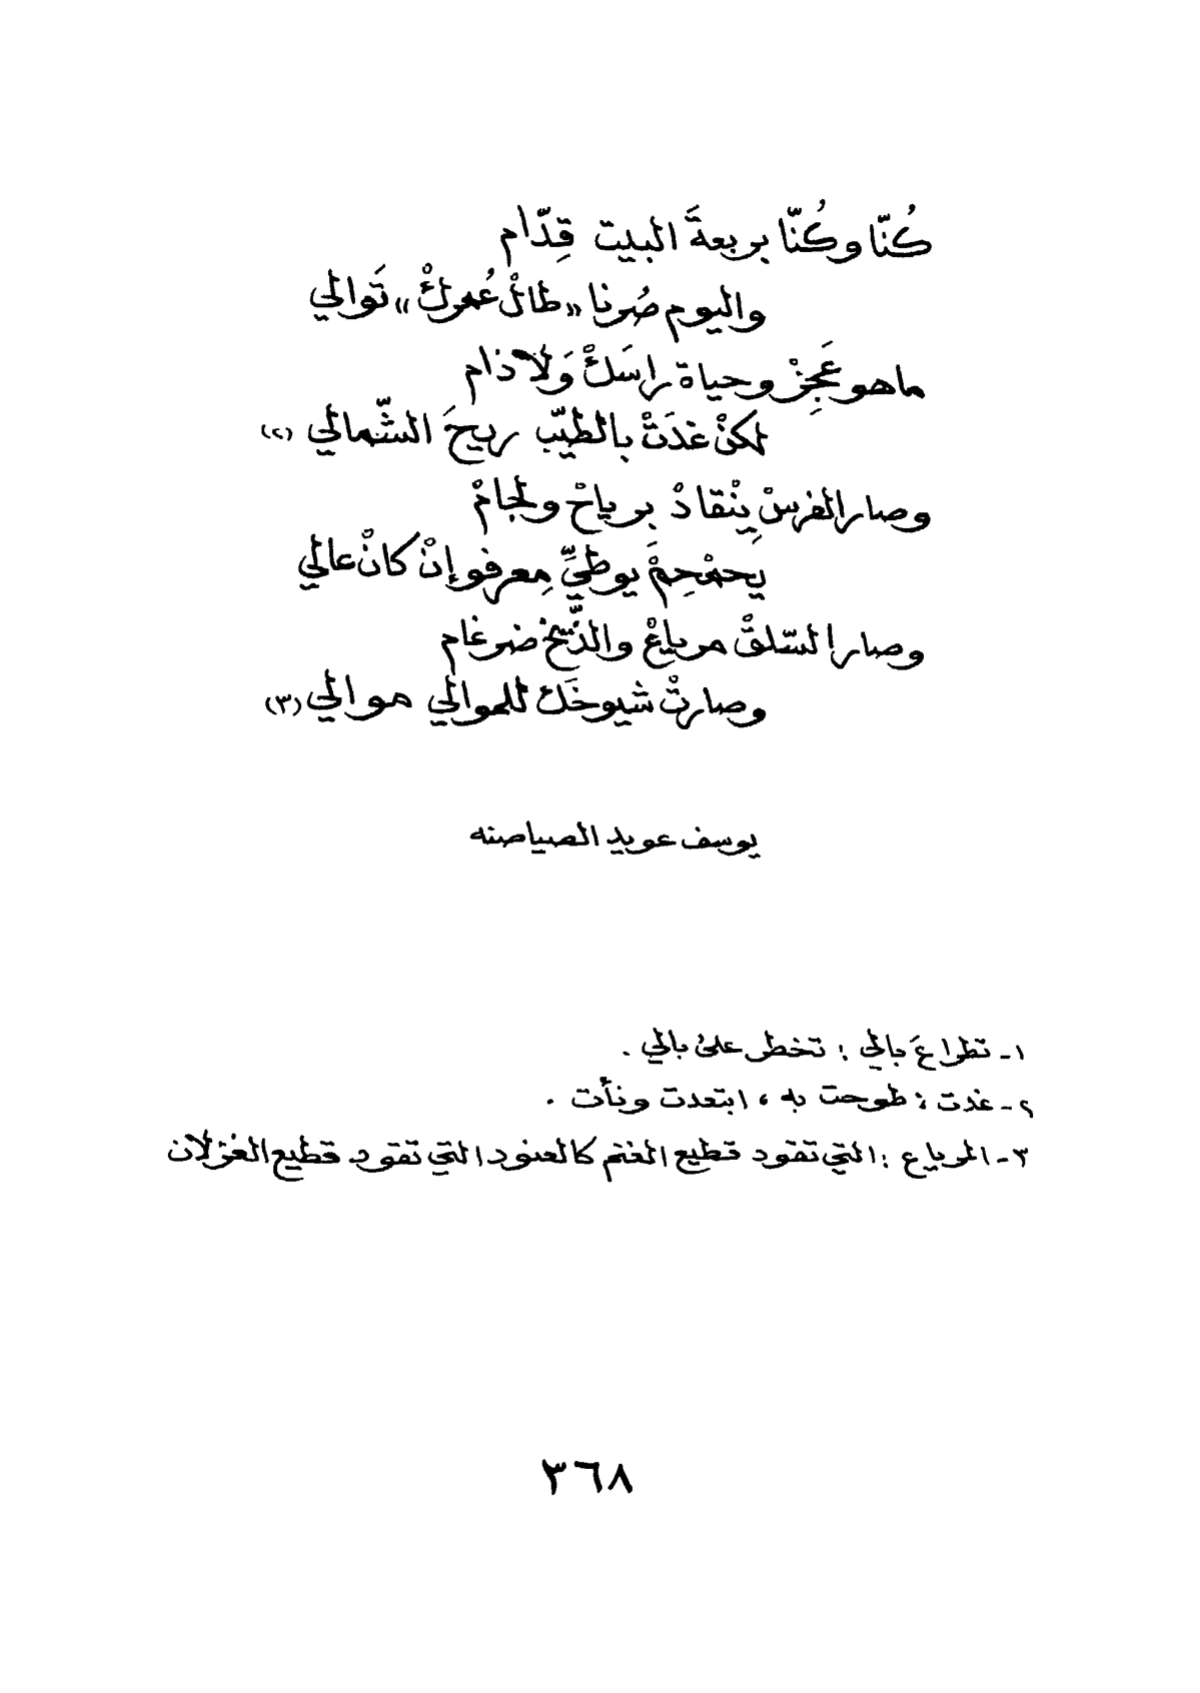 كُنّا وكُنّا بربعةَ البيت قِدّام
واليوم صُرنا «طالْ عُمركْ» تَوالي
ماهو عَجِزْ وحياة راسَكْ وَلا ذام
لمكنْ غدَتْ بالطيّب ريحَ الشّمالي (٢)
وصار الفرسْ يِنْقادْ برياحْ ولجامْ
يَحمْحِمْ يوطيِّ مِعرفو إنْ كانْ عالي
وصار السّلقْ مرياعْ والذّيخ ضرغام
وصارتْ شيوخَك للموالي موالي (٣)
يوسف عويد الصياصنه
١- تطرا عَ بالي : تخطر على بالي .
٢- غدت : طوحت به ، ابتعدت ونأت .
٣- المرياع : التي تقود قطيع الغنم كالعنود التي تقود قطيع الغزلان
٣٦٨